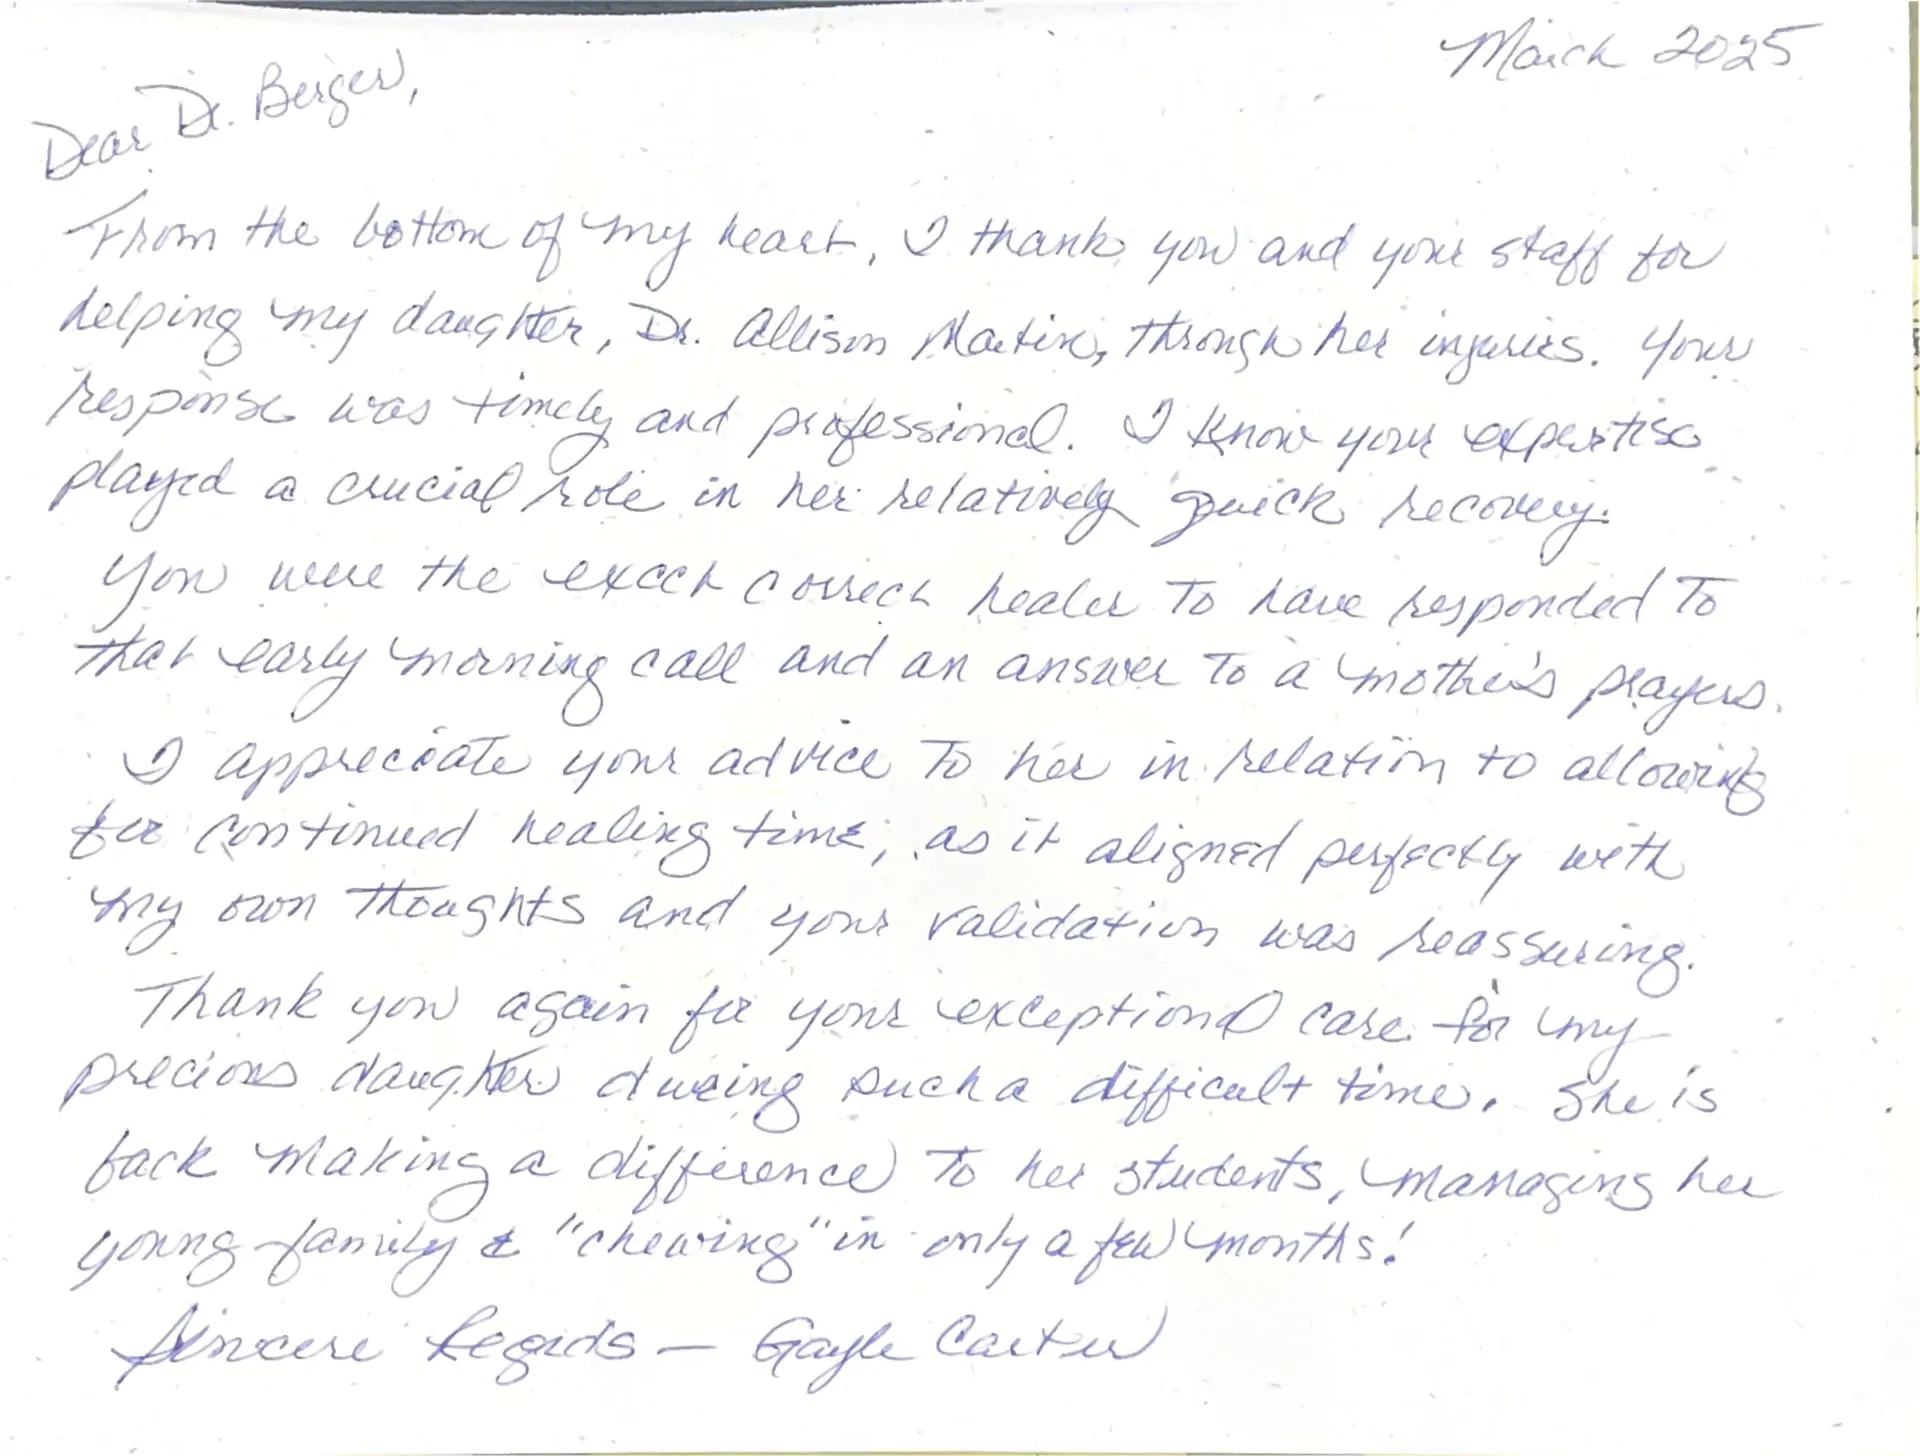 March 2025
Dear Dr. Berger,
From the bottom of my heart, I thank you and your staff for
helping my daughter, Dr. Allison Martin, through her injuries. Your
response was timely and professional. I know your expertise
played a crucial role in her relatively quick recovery.
You were the exact correct healer to have responded to
that early morning call and an answer to a mother's prayers.
I appreciate your advice to her in relation to allowing
for continued healing time, as it aligned perfectly with
my own thoughts and your validation was reassuring.
Thank you again for your exceptional care for my
precious daughter during such a difficult time. She is
back making a difference to her students, managing her
young family & "chewing" in only a few months!
Sincere Regards — Gayle Carter